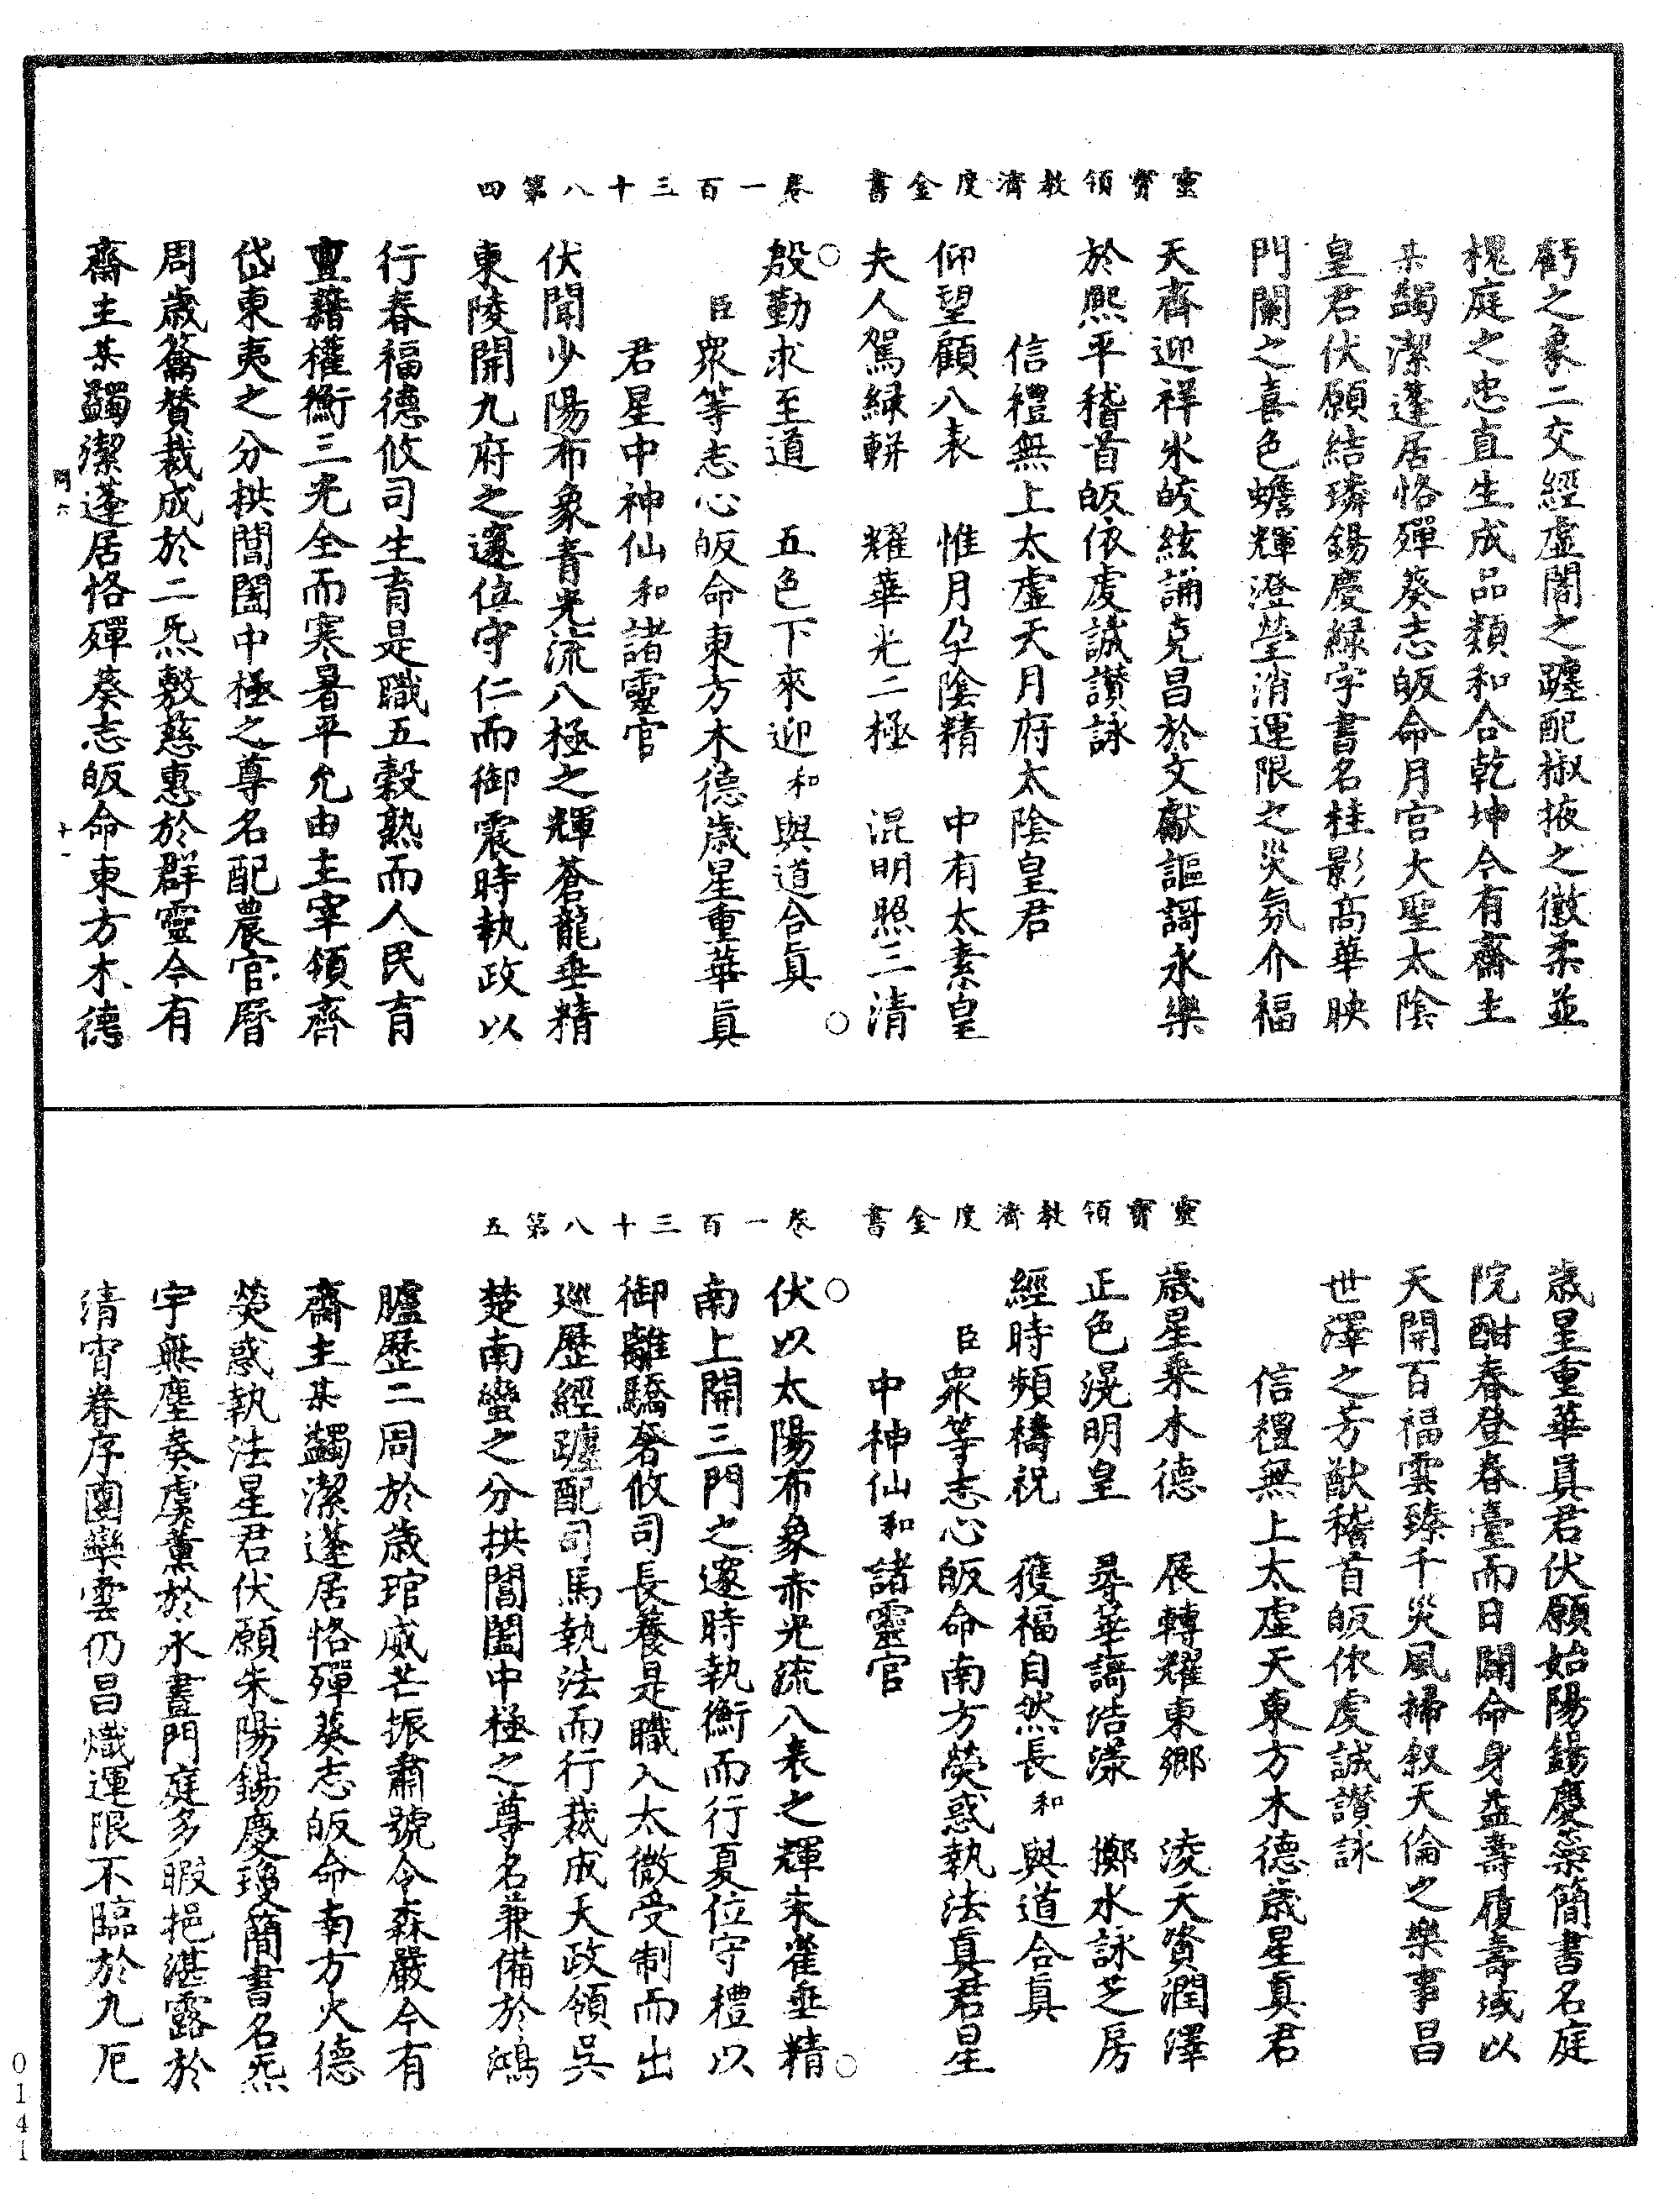 靈寶領教濟度金書　卷一百三十八第四
虧之象二交經虛闇之躔配椒掖之徽柔並
槐庭之忠直生成品類和合乾坤今有齋主
某蠲潔蓬居恪殫葵志皈命月宮大聖太陰
皇君伏願結璘錫慶綠字書名桂影高華映
門闌之喜色蟾輝澄瑩消運限之災氛介福
天齊迎祥氷皎絃誦克昌於文獻謳謌永樂
於熙平稽首皈依虔誠讃詠
信禮無上太虛天月府太陰皇君
仰望顧八表　惟月孕陰精　中有太素皇
夫人駕綠軿　耀華光二極　混明照三清
殷勤求至道　五色下來迎和與道合眞
臣衆等志心皈命東方木德歲星重華眞
君星中神仙和諸靈官
伏聞少陽布象青光流八極之輝蒼龍垂精
東陵開九府之邃位守仁而御震時執政以
行春福德攸司生育是職五穀熟而人民育
亶藉權衡三光全而寒暑平允由主宰領齊
岱東夷之分拱閶闔中極之尊名配農官曆
周歲籥賛裁成於二炁敷慈惠於群靈今有
齋主某蠲潔蓬居恪殫葵志皈命東方木德
問六　十一
靈寶領教濟度金書　卷一百三十八第五
歲星重華眞君伏願始陽錫慶蘂簡書名庭
院酣春登春臺而日闢命身益壽履壽域以
天開百福雲臻千災風掃叙天倫之樂事昌
世澤之芳猷稽首皈依虔誠讃詠
信禮無上太虛天東方木德歲星眞君
歲星乗木德　展轉耀東鄉　淩天資潤澤
正色滉明皇　尋華謌浩漾　擲水詠芝房
經時頻禱祝　獲福自然長和與道合眞
臣衆等志心皈命南方熒惑執法眞君星
中神仙和諸靈官
伏以太陽布象赤光流八表之輝朱雀垂精
南上開三門之邃時執衡而行夏位守禮以
御離驕奢攸司長養是職入太微受制而出
廵歷經躔配司馬執法而行裁成天政領吳
楚南蠻之分拱閶闔中極之尊名兼備於鴻
臚歷二周於歲琯威芒振肅號令森嚴今有
齋主某蠲潔蓬居恪殫葵志皈命南方火德
熒惑執法星君伏願朱陽錫慶瓊簡書名炁
宇無塵奏虞薰於永晝門庭多暇挹湛露於
清宵眷序團欒雲仍昌熾運限不臨於九厄
0141